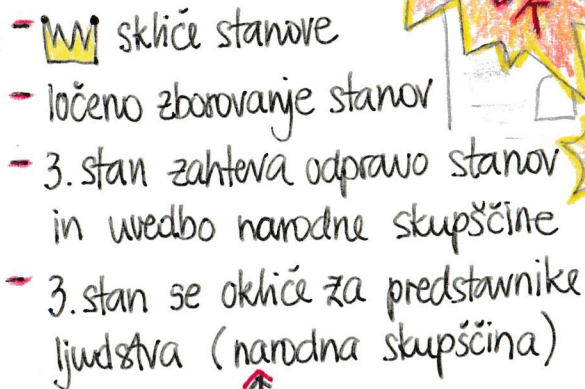 - skliče stanove
- ločeno zborovanje stanov
- 3. stan zahteva odpravo stanov
in uvedbo narodne skupščine
- 3. stan se okliče za predstavnike
ljudstva (narodna skupščina)